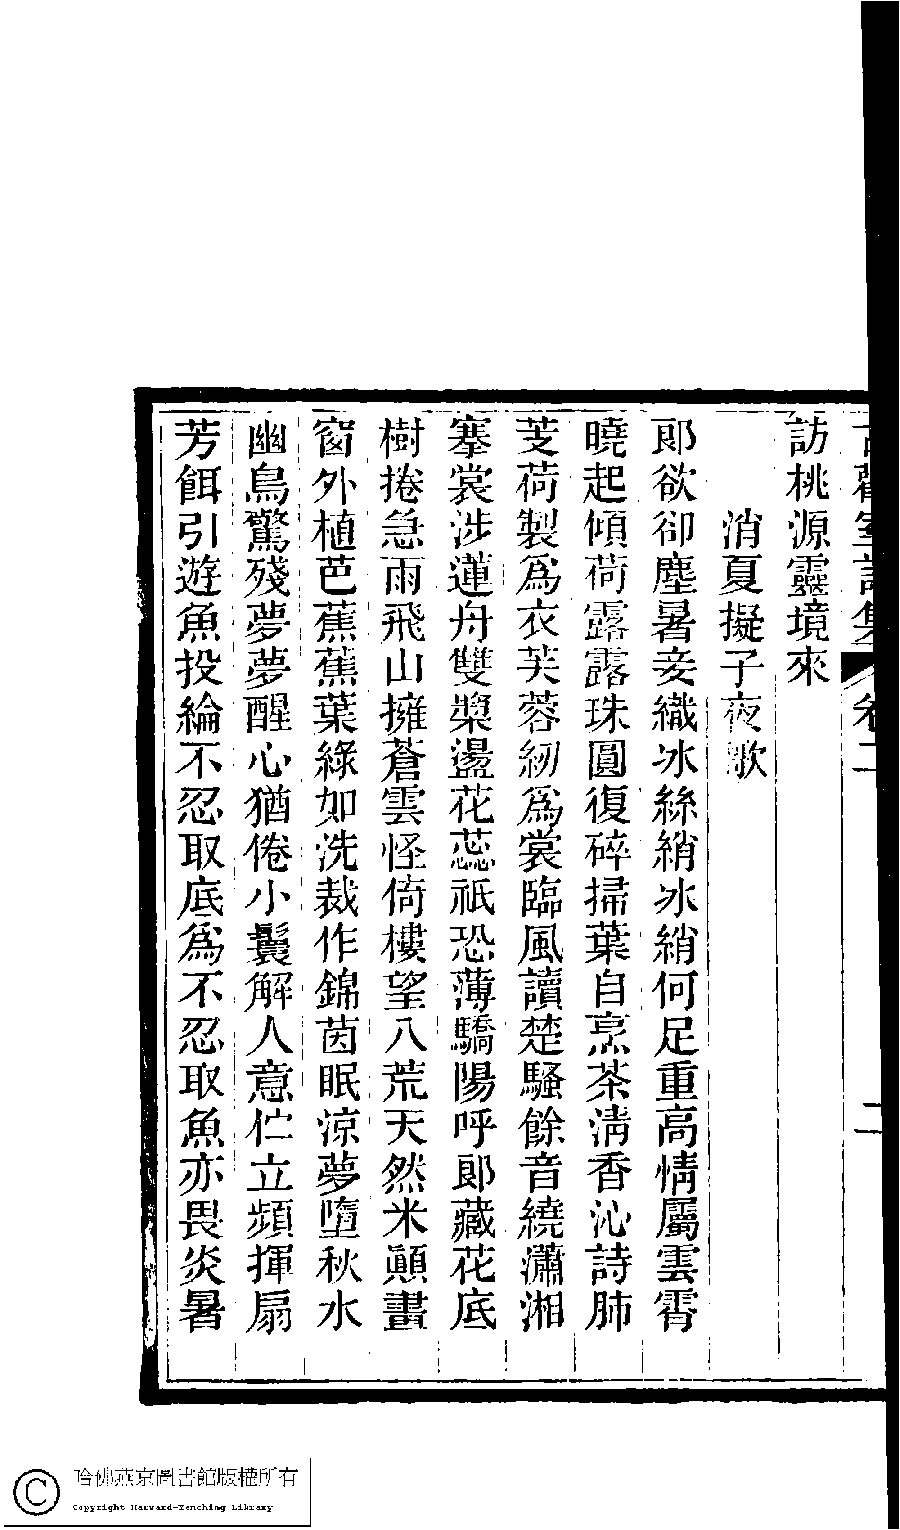 訪桃源靈境來
消夏擬子夜歌
郎欲卻塵暑妾織冰絲綃冰綃何足重高情屬雲霄
曉起傾荷露露珠圓復碎掃葉自烹茶淸香沁詩肺
芰荷製爲衣芙蓉紉爲裳臨風讀楚騷餘音繞瀟湘
搴裳涉蓮舟雙槳盪花蕊祇恐薄驕陽呼郎藏花底
樹捲急雨飛山擁蒼雲怪倚樓望八荒天然米顚畫
窗外植芭蕉蕉葉綠如洗裁作錦茵眠涼夢墮秋水
幽鳥驚殘夢夢醒心猶倦小鬟解人意伫立頻揮扇
芳餌引遊魚投綸不忍取底爲不忍取魚亦畏炎暑
卷二
二
哈佛燕京圖書館版權所有
Copyright Harvard-Yenching Library